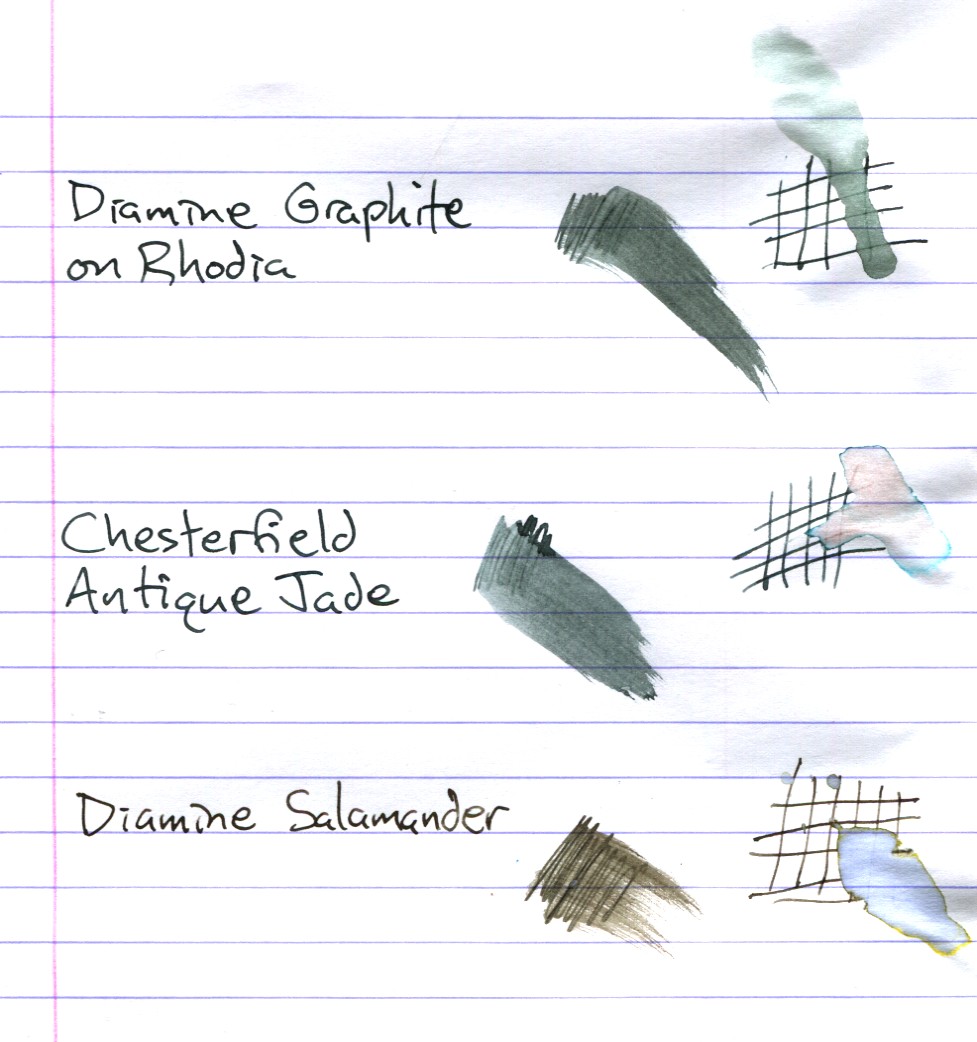 Diamine Graphite
on Rhodia
Chesterfield
Antique Jade
Diamine Salamander